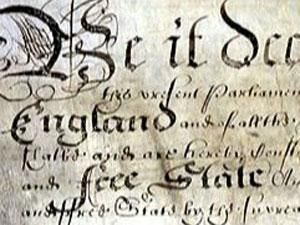 Be it dec
this present Parliamen
England and of all the
shalbe and are hereby Const
and free State
and ffree State by the